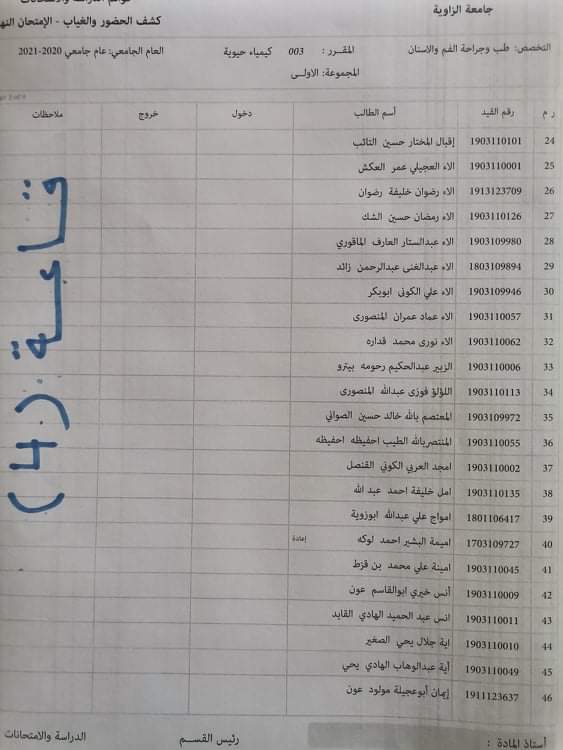 جامعة الزاوية
كشف الحضور والغياب - الإمتحان
التخصص: طب وجراحة الفم والاسنان المقرر : 003 كيمياء حيوية العام الجامعي: عام جامعي 2020-2021
المجموعة: الاولى
ر م رقم القيد أسم الطالب دخول خروج ملاحظات
24 1903110101 إقبال المختار حسين التائب
25 1903110001 الاء العجيلي عمر العكش
26 1913123709 الاء رضوان خليفة رضوان
27 1903110126 الاء رمضان حسين الشك
28 1903109980 الاء عبدالستار العارف الماقوري
29 1803109894 الاء عبدالغنى عبدالرحمن زائد
30 1903109946 الاء علي الكونى ابوبكر
31 1903110057 الاء عماد عمران المنصورى
32 1903110062 الاء نورى محمد قداره
33 1903110006 الزبير عبدالحكيم رحومه بيترو
34 1903110113 اللؤلؤ فوزى عبدالله المنصورى
35 1903109972 المعتصم بالله خالد حسين الصواني
36 1903110055 المنتصربالله الطيب احفيظه احفيظه
37 1903110002 امجد العربي الكوني القنصل
38 1903110135 امل خليفة احمد عبد الله
39 1801106417 امواج علي عبدالله ابوزوية
40 1703109727 اميمة البشير احمد لوكه إعادة
41 1903110045 امينة علي محمد بن قزط
42 1903110009 أنس خيري ابوالقاسم عون
43 1903110011 انس عبد الحميد الهادي القايد
44 1903110010 اية جلال يحي الصغير
45 1903110049 أية عبدالوهاب الهادي يحي
46 1911123637 إيمان أبوعجيلة مولود عون
قاعة (4)
أستاذ المادة : رئيس القسم الدراسة والامتحانات